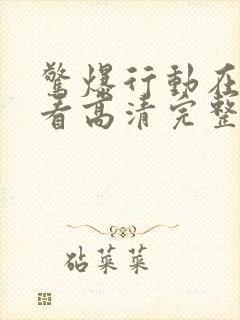 驚爆行動在
看高清完整
砧菜菜